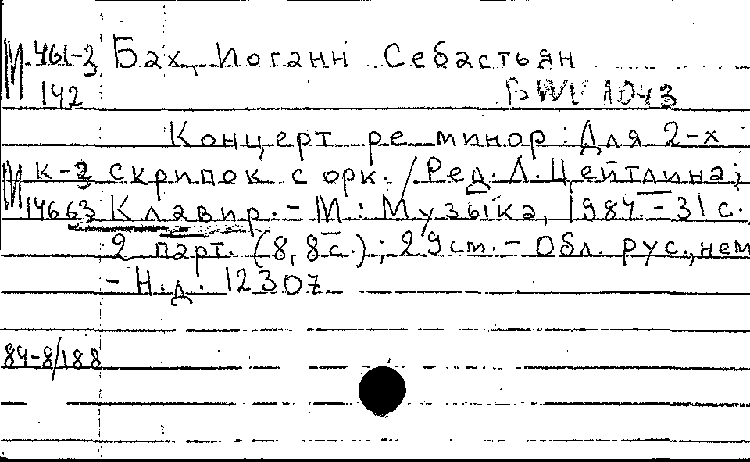 М 461-3 Бах, Иоганн Себастьян
142 BWV 1043
Концерт ре минор: Для 2-х
М К-2 скрипок с орк. / Ред. Л. Цейтлина;
14663 Клавир. - М.: Музыка, 1984 - 31 с.
2 парт. (8, 8 с.); 29 см. - Обл. рус., нем
- Н.д. 12307
84-8/188